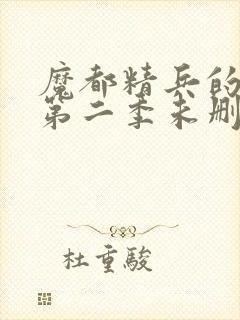 魔都精兵的
第二季未删
杜重骏